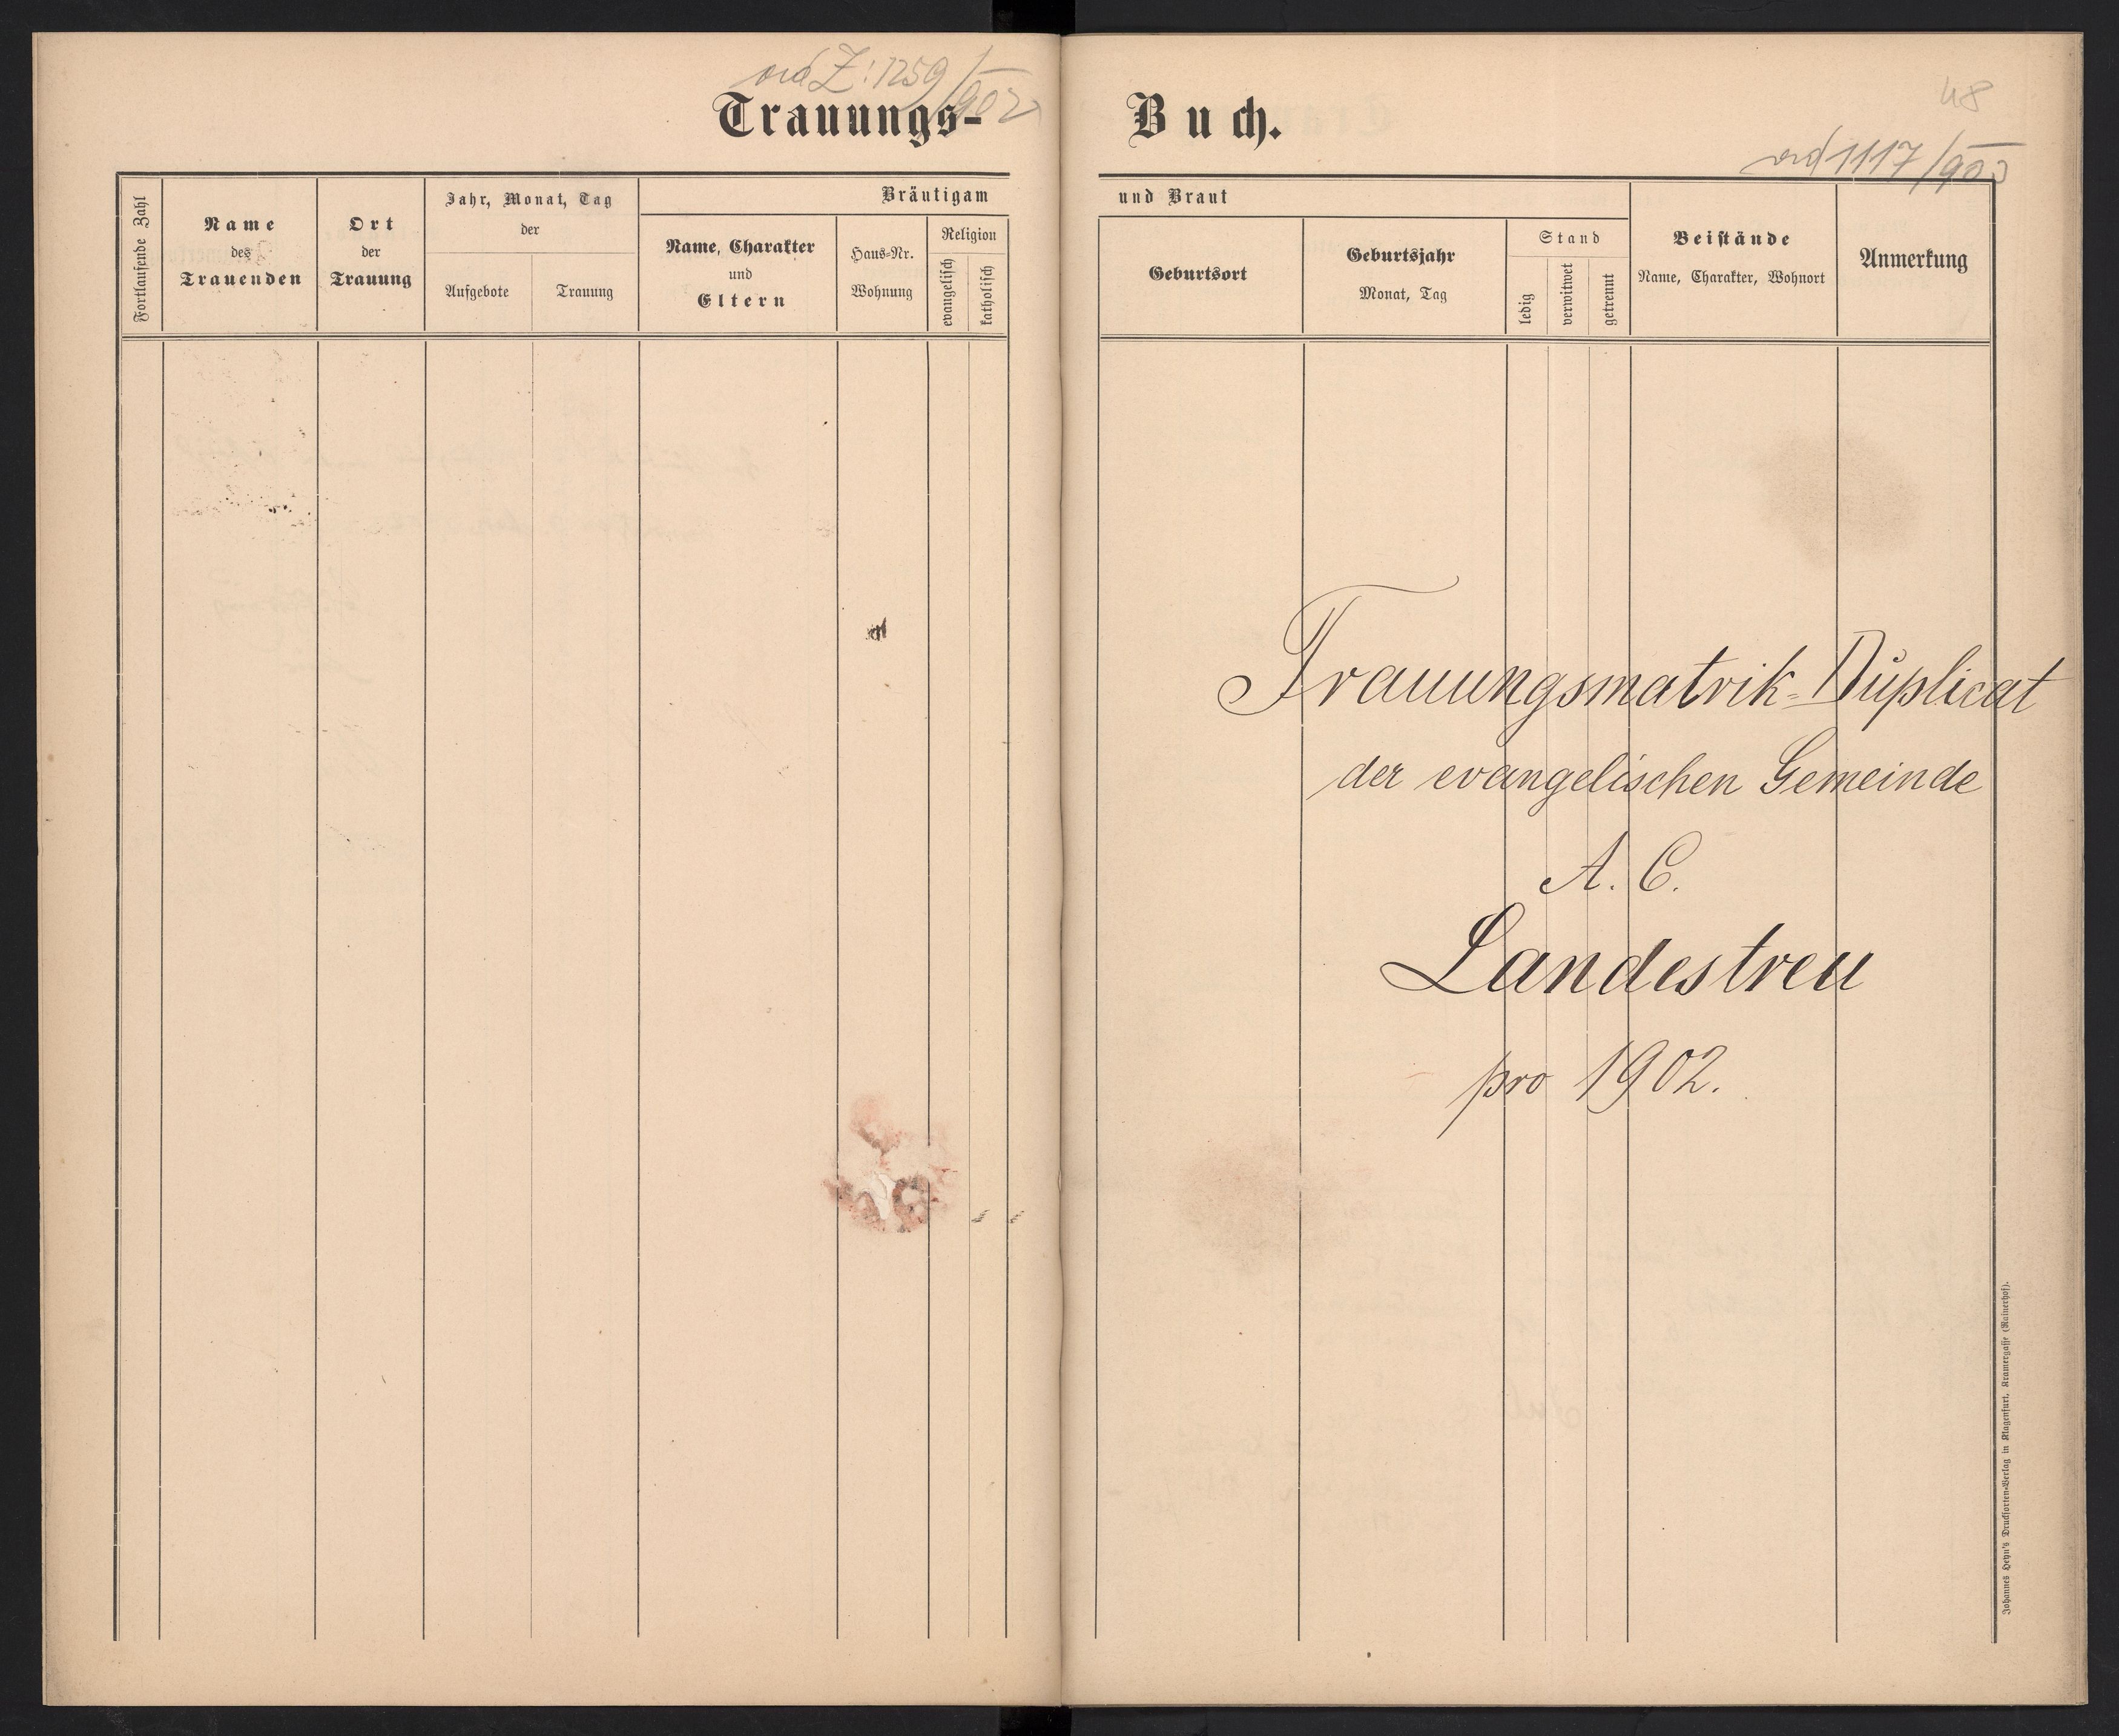 ad Z: 1259/902
Trauungs-
Fortlaufende Zahl
Name
des
Trauenden
Ort
der
Trauung
Jahr, Monat, Tag
der
Aufgebote
Trauung
Bräutigam
Name, Charakter
und
Eltern
Haus-Nr.
Wohnung
Religion
evangelisch
katholisch
48
Buch.
ad 1117/903
und Braut
Geburtsort
Geburtsjahr
Monat, Tag
Stand
ledig
verwitwet
getrennt
Beistände
Name, Charakter, Wohnort
Anmerkung
Trauungsmatrik-Duplicat
der evangelischen Gemeinde
A. C.
Landestreu
pro 1902.
Johannes Heyn's Drucksorten-Verlag in Klagenfurt, Kramergasse (Rainerhof).